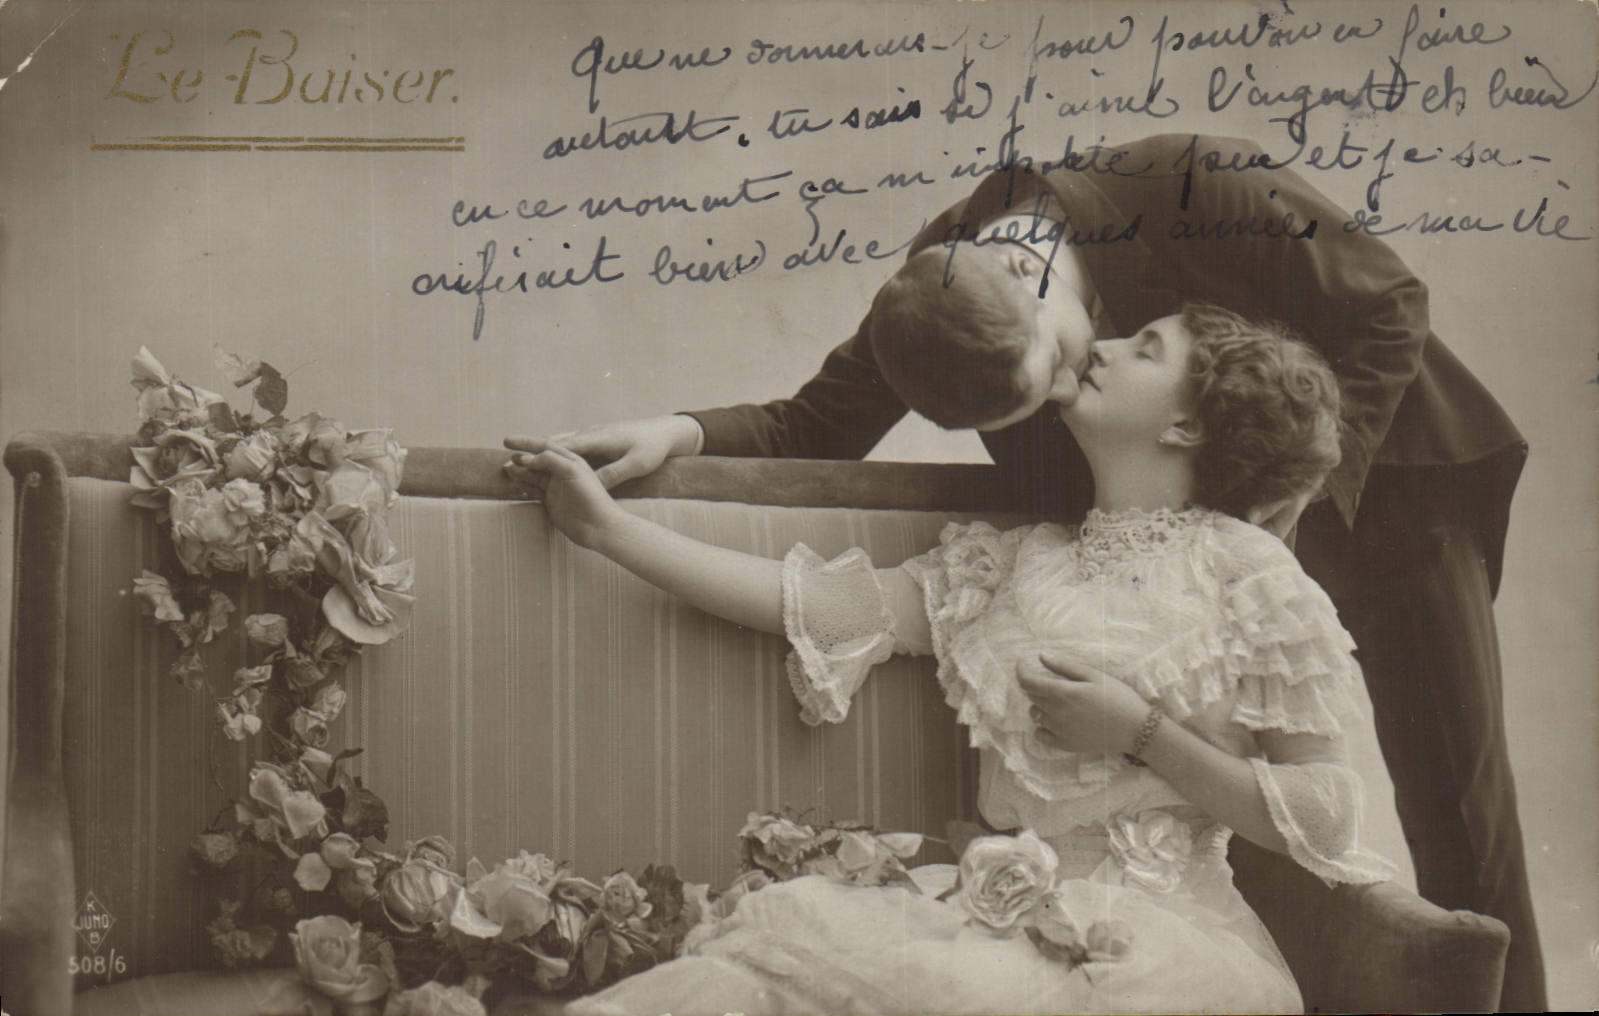 Le Baiser.
Que ne donnerais-je pour pouvoir en faire
autant, tu sais si j'aime l'argent eh bien
en ce moment ça m'importe peu et je sa-
crifirait bien avec quelques années de ma vie
K
JUNO
B
508/6